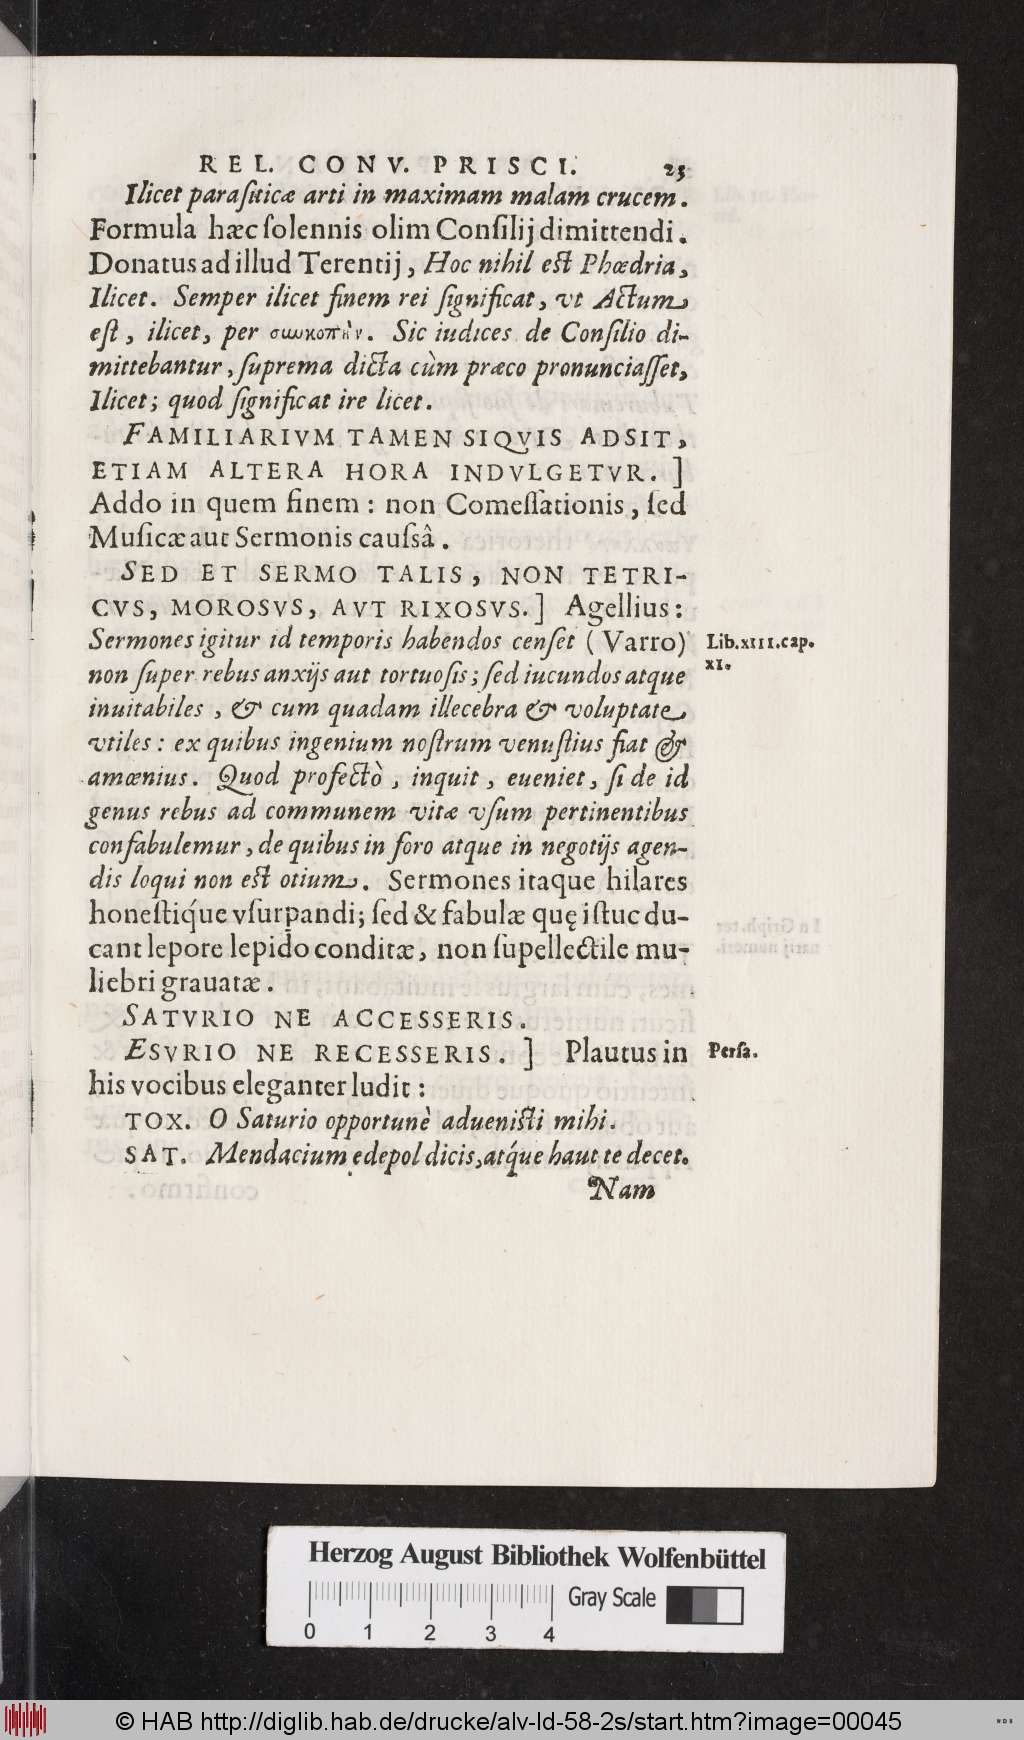 REL. CONV. PRISCI. 25
Ilicet paraſiticæ arti in maximam malam crucem.
Formula hæc ſolennis olim Conſilij dimittendi.
Donatus ad illud Terentij, Hoc nihil eſt Phœdria,
Ilicet. Semper ilicet finem rei ſignificat, vt Actum
eſt, ilicet, per . Sic iudices de Conſilio di-
mittebantur, ſuprema dicta cùm præco pronunciaſſet,
Ilicet; quod ſignificat ire licet.
FAMILIARIVM TAMEN SIQVIS ADSIT,
ETIAM ALTERA HORA INDVLGETVR. ]
Addo in quem finem: non Comeſſationis, ſed
Muſicæ aut Sermonis cauſsâ.
SED ET SERMO TALIS, NON TETRI-
CVS, MOROSVS, AVT RIXOSVS. ] Agellius:
Sermones igitur id temporis habendos cenſet (Varro)
Lib.XIII.cap.
XI.
non ſuper rebus anxijs aut tortuoſis; ſed iucundos atque
inuitabiles, & cum quadam illecebra & voluptate
vtiles: ex quibus ingenium noſtrum venuſtius fiat &
amœnius. Quod profectò, inquit, eueniet, ſi de id
genus rebus ad communem vitæ vſum pertinentibus
confabulemur, de quibus in foro atque in negotijs agen-
dis loqui non eſt otium. Sermones itaque hilares
honeſtiq́ue vſurpandi; ſed & fabulæ quę iſtuc du-
cant lepore lepido conditæ, non ſupellectile mu-
liebri grauatæ.
SATVRIO NE ACCESSERIS.
ESVRIO NE RECESSERIS. ] Plautus in
Perſa.
his vocibus eleganter ludit:
TOX. O Saturio opportunè adueniſti mihi.
SAT. Mendacium edepol dicis, atq́ue haut te decet.
Nam
Herzog August Bibliothek Wolfenbüttel
Gray Scale
0 1 2 3 4
© HAB http://diglib.hab.de/drucke/alv-ld-58-2s/start.htm?image=00045